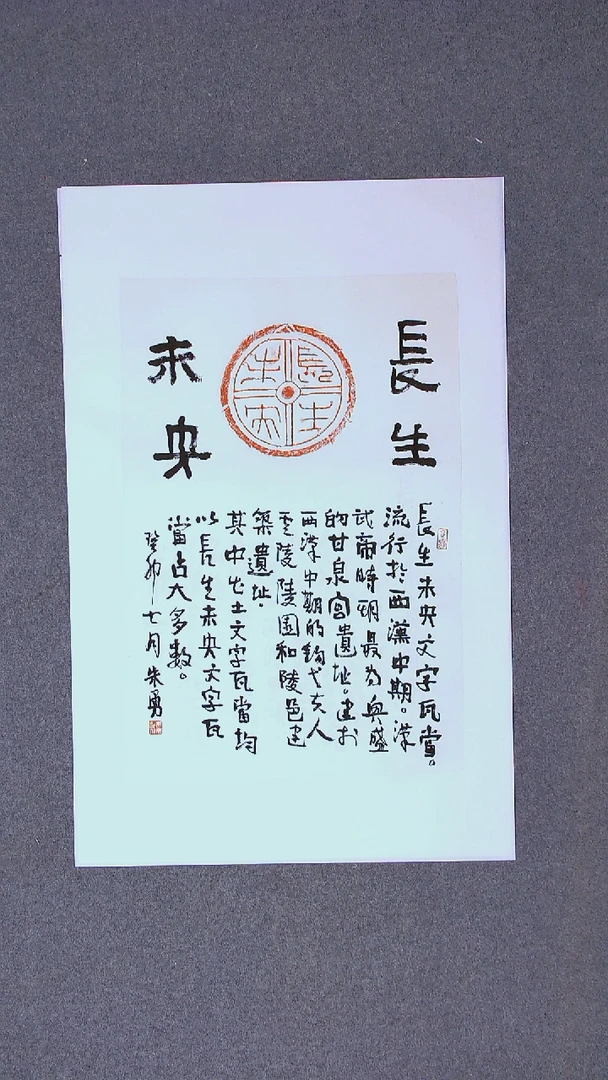 長生
未央
長生未央
長生未央文字瓦當。
流行於西漢中期。漢
武帝時期最為興盛
的甘泉宮遺址。建於
西漢中期的鈎弋夫人
雲陵陵園和陵邑建
築遺址.
其中出土文字瓦當均
以長生未央文字瓦
當占大多數。
癸卯七月朱勇